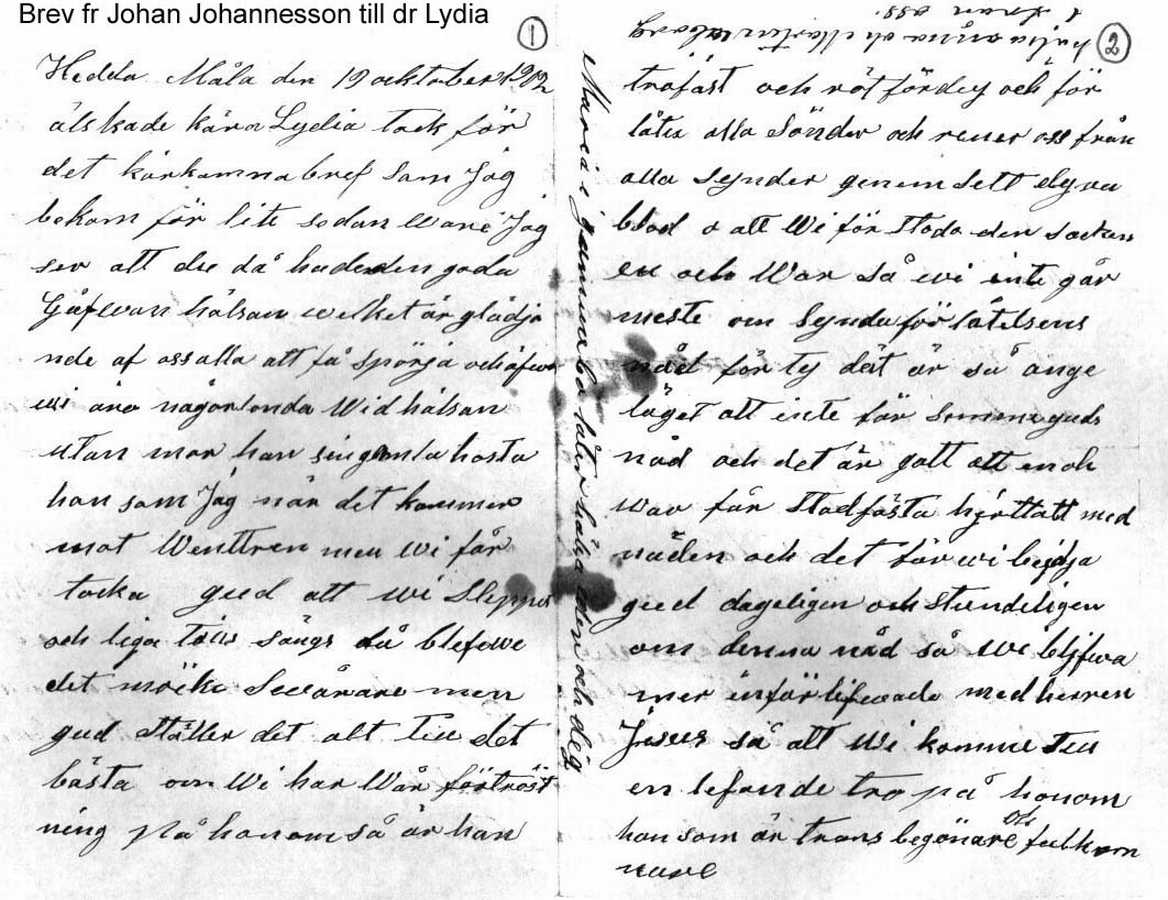 Brev fr Johan Johannesson till dr Lydia
1
Hedda Måla den 19 ocktober 1902
älskade kära Lydia tack för
det kärkomna bref som Jag
bekom för lite sedan Jag
ser att du då hade den goda
Gåfwan hälsan welket är glädja
nde af oss alla att få spörja och äfwen
wi äro någorlonda Wid hälsan
utan mor han hosta
han som Jag när det kommer
mot Wenttren men wi får
tacka gud att wi Sleppa
och liga till sängs då blefwe
det möcke Swårare men
gud ställer det alt till det
bästa om Wi har Wår förtröst
ning på honom så är han
Maria i låter hälsa eder och dig
2
hälsa och Martin
från oss.
trofast och rätfärdig och för
låter alla Sönder och renar oss från
alla synder genom sett dyra
blod o att Wi förstode den saken
en och War så wi inte går
meste om Syndaförlåtelsens
nåd för ty det är så ange
läget att inte för guds
nåd och det är gått att en oh
war får stadfästa hjerttatt med
nåden och det får wi bedja
gud dageligen och stundeligen
om denna nåd så wi blifwa
mer införlifwade med herren
Jesus så att Wi komme till
en lefande tro på honom
han som är trons begönare och fullkom
nare